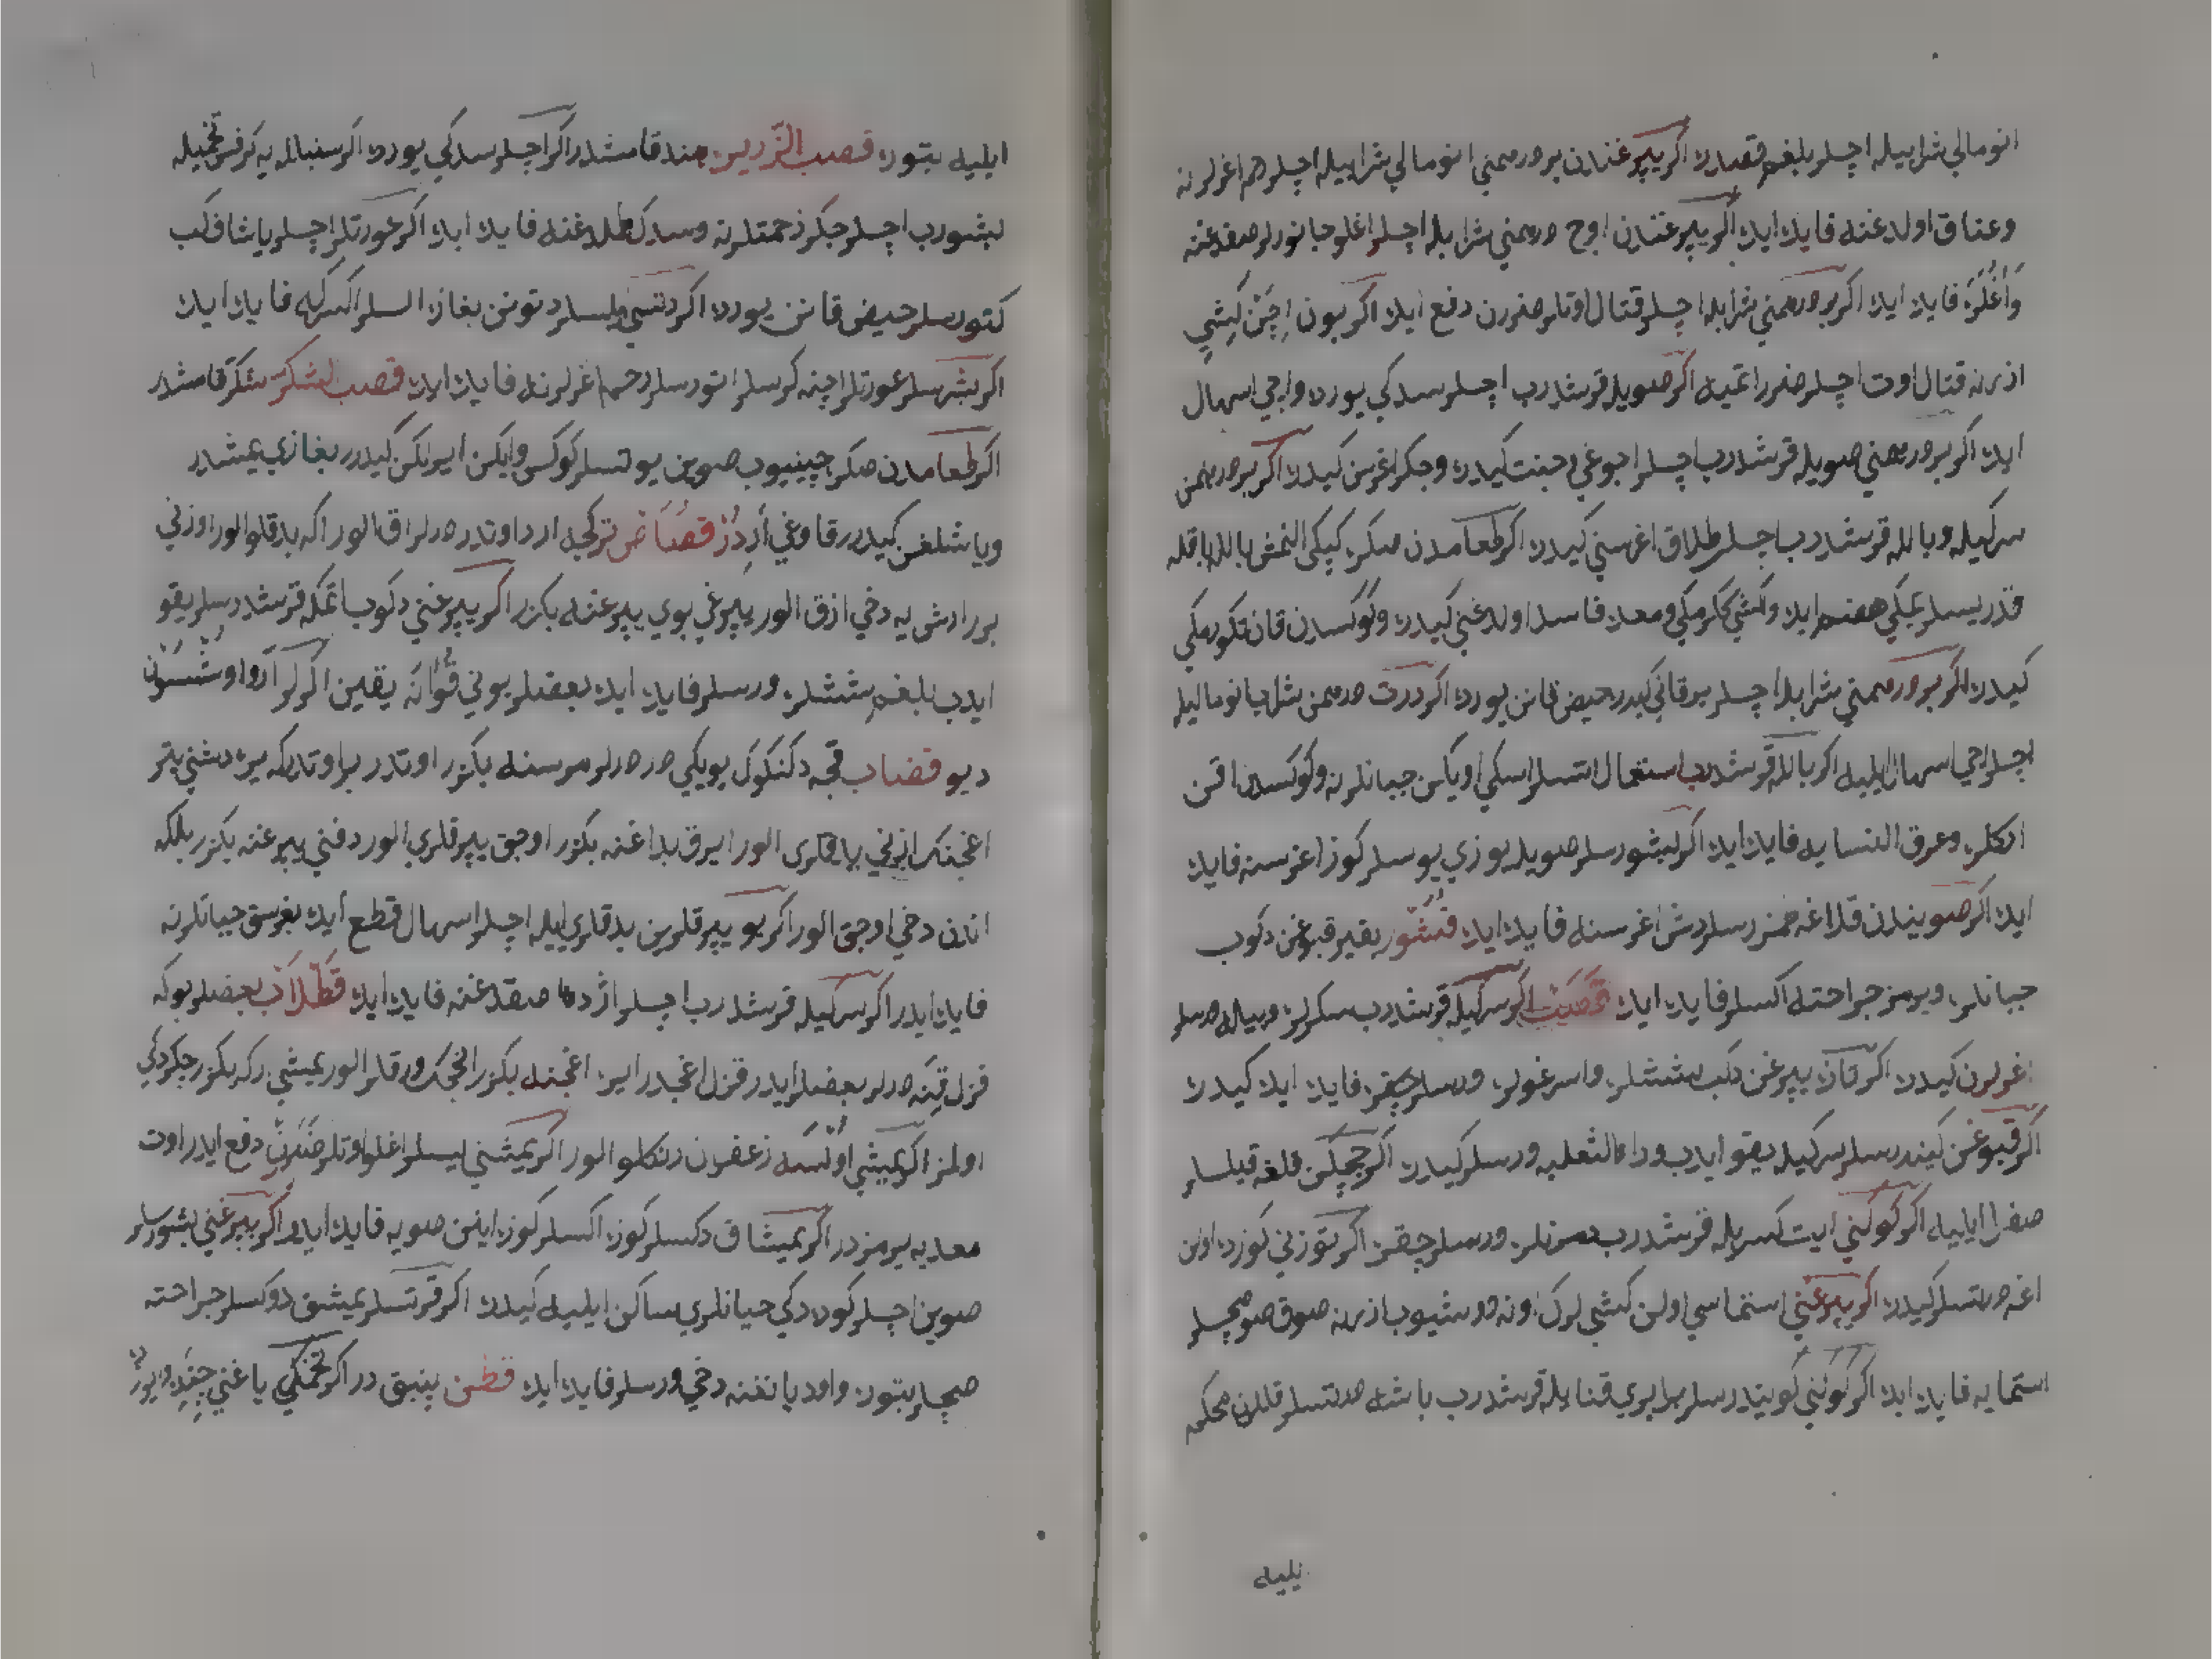 انومالي شرابيله اچلر بلغم قصدره اكر يپرغندن بر درهمني انومالي شرابيله اچلر رحم اغرلرنه
وعناق اولدغنه فايده ايده اكر يپرغندن اوچ درهمني شرابله اچلر اغلو جانورلر صقدغنه
واغلره فايده ايده اكر بر درهمني شرابله اچلر قتال اوتلر ضررن دفع ايده اكر بون اچن كيشي
ازرنه قتال اوت اچلر ضرر اتميه اكر صويله قرشدرب اچلر سدكي يورده واچي اسهال
ايده اكر بر درهمني صويله قرشدرب اچلر اچوغي وجنت كيدره وجكر اغرسن كيدره اكر بر درهمن
سركيله وباللە قرشدرب اچلر طلاق اغرسني كيدره اكر طعامدن صكره كپكي النمش باللە باقله
قدر يسلر يمكي هضم ايده واكشي ككرمكي ومعده فاسد اولدغني كيدره وكوكسدن قان تكورمكي
كيدره اكر بر درهمني شرابله اچلر يرقاني كيدر حيض قانن يورده اكر درت درهمن شراب يا نوماليله
اچلر اچي اسهال ايليه اكر باللە قرشدرب استعمال اتسلر اسكي اويكن چبانلرنه وكوكسدن اقن
اركلره وعرق النسايه فايده ايده اكر بشورسلر صويله يوزي يوسلر كوز اغرسنه فايده
ايده اكر صويندن قلاغه طمزرسلر دش اغرسنه فايده ايده قشور بقير قبوغن دكوب
چبانلره ويرمز جراحته اكسلر فايده ايده قصب اكر سركيله قرشدرب سكرلره وبياله صرسلر
اغرلرن كيدره اكر تازه يپرغن دكب ششلره واسرغولره ورسلر چقره فايده ايده كيدره
اكر قبوغن كيندرسلر سركيله يقو ايدب وداء الثعلبه ورسلر كيدره اكر چچكن قلغه قيلسلر
صغر ايليه اكر كولني ايت كسريله قرشدرب دمرنلره ورسلر چقره اكر توزني كوزده اولن
اغه صرتسلر كيدره اكر يپرغني استماسي اولن كشي لرك اونه دوشيوب ازرنه صوق صو صچلر
استمايه فايده ايده اكر كولني كويندرسلر برابري قنايله قرشدرب باشه صرتسلر قللرن محكم
يليه
ايليه بتوره قصب الزريره هند قامشدر اكر اچلر سدكي يورده اكر سنباله يه كرفس تخميله
بشورب اچلر جكر زحمتلرنه وسدك طملدغنه فايده ايده اكر عورتلر اچلر ياشاف كب
كتورسلر حيض قانن يورده اكر دتسي ويلسلر دتونن بغازه السلر اكسركه فايده ايده
اكر بشرسلر عورتلر اچنه كرسلر اتورسلر رحم اغرلرنه فايده ايده قصب السكر شكر قامشدر
اكر طعامدن صكره چينيوب صوين يوتسلر كوكس وايكن ايرلكن كيدر بغازي يمشدر
وياشلغن كيدر قاوغي اردر قصاص تركجه اردا وتدر ديرلر اق الور اكه بدقلو الور اوزني
بر ارش يه دخي ازق الور يپرغي بوي يپرغنه بكزر اكر يپرغني دكوب اتمكله قرشدرسلر يقو
ايدب بلغم ششلره ورسلر فايده ايده بعضلر بوني قوانه يقين اكرلر اروا وششون
ديو قضاب قجه دكنكوك يويكي در ديرلر مرسنه بكزر اوتدر بر اوتدركه يره دشني بتر
اغجنك اوزني ياپقلري الور ايرق بداغنه بكزر اوجق يپرقلري الور دفني يپرغنه بكزر بلكه
اندن دخي اوجق الور اكر بو يپرقلرين بدقلري ايله اچلر اسهال قطع ايده بغرسق حيانلرنه
فايده ايدر اكر سركيله قرشدرب اچلر اژدها صقدغنه فايده ايده قطلب بعضلر بوكه
قزل قنه ديرلر بعضلر ايدر قزل اغجدر ايره اغجنه بكزر انجك ورقلر الور يمشي اركه بكزر چكردكي
اولمز اكر يمشي اولسه زعفرن رنكلو الور اكر يمشني يسلر اغلو اوتلر ضررن دفع ايدر اوت
معديه يرمزدر اكر يمشاق دكسلر كوزه اكسلر كوزه اينن صويه فايده ايده واكر يپرغني بشورسلر
صوين اچلر كوده دكي حيانلري ساكن ايليه كيدره اكر قرتسلر يمشق دوكسلر جراحته
صچلر بتوره واوده يانغنه دخي ورسلر فايده ايده قطن پنبق در اكر تخمنكي ياغني چقر